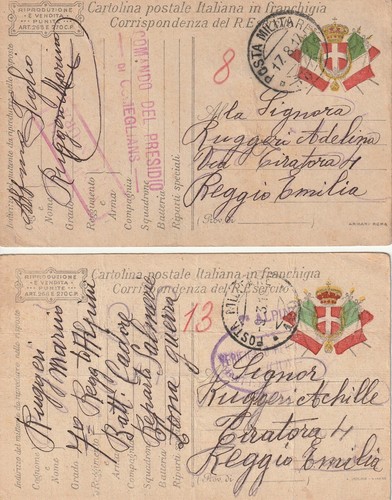 RIPRODUZIONE
E VENDITA
PUNITE
ART. 268 E 270 C.P.
Cartolina postale Italiana in franchigia
Corrispondenza del R. Eserc
POSTA MILITARE
17.8.
8
COMANDO DEL PRESIDIO
DI COMEGLIANS
Indirizzo del mittente da riprodurre nelle risposte
Cognome
e Nome
Grado
Reggimento
e Arma
Compagnia
Squadrone
Batteria
Riparti speciali
Ruggeri Marino
Alla Signora
Ruggeri Adelina
Via Tiratora 4
Reggio Emilia
RIPRODUZIONE
E VENDITA
PUNITE
ART. 268 E 270 C.P.
Cartolina postale Italiana in franchigia
Corrispondenza del R. Esercito
POSTA MILI
13
Indirizzo del mittente da riprodurre nelle risposte
Cognome
e Nome
Grado
Reggimento
e Arma
Compagnia
Squadrone
Batteria
Riparti
Ruggeri
Marino
7º Regg. Alpini
Batt. Cadore
Reparto Salmerie
Zona guerra
Signor
Ruggeri Achille
Tiratora 4
Reggio Emilia